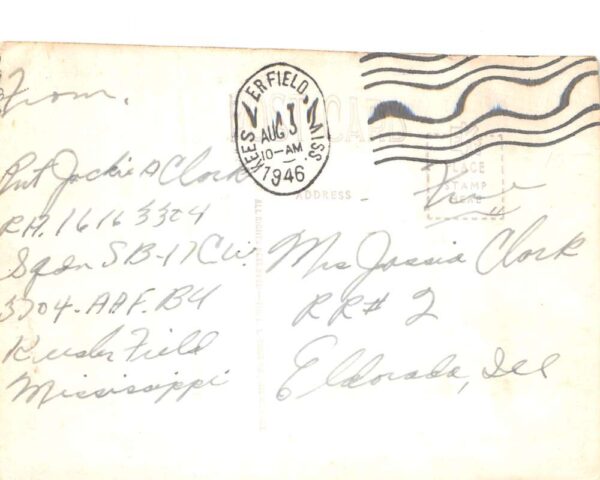 From.
KEESLER FIELD, MISS.
AUG 3
10-AM
1946
POST CARD
PLACE
STAMP
HERE
Free
ADDRESS
Pvt Jackie A Clark
R.A. 16163304
Sqdn S B-17 C.W.
3704-AAF. BU
Keesler Field
Mississippi
Mrs Jossia Clark
RR# 2
Eldorado, Ill